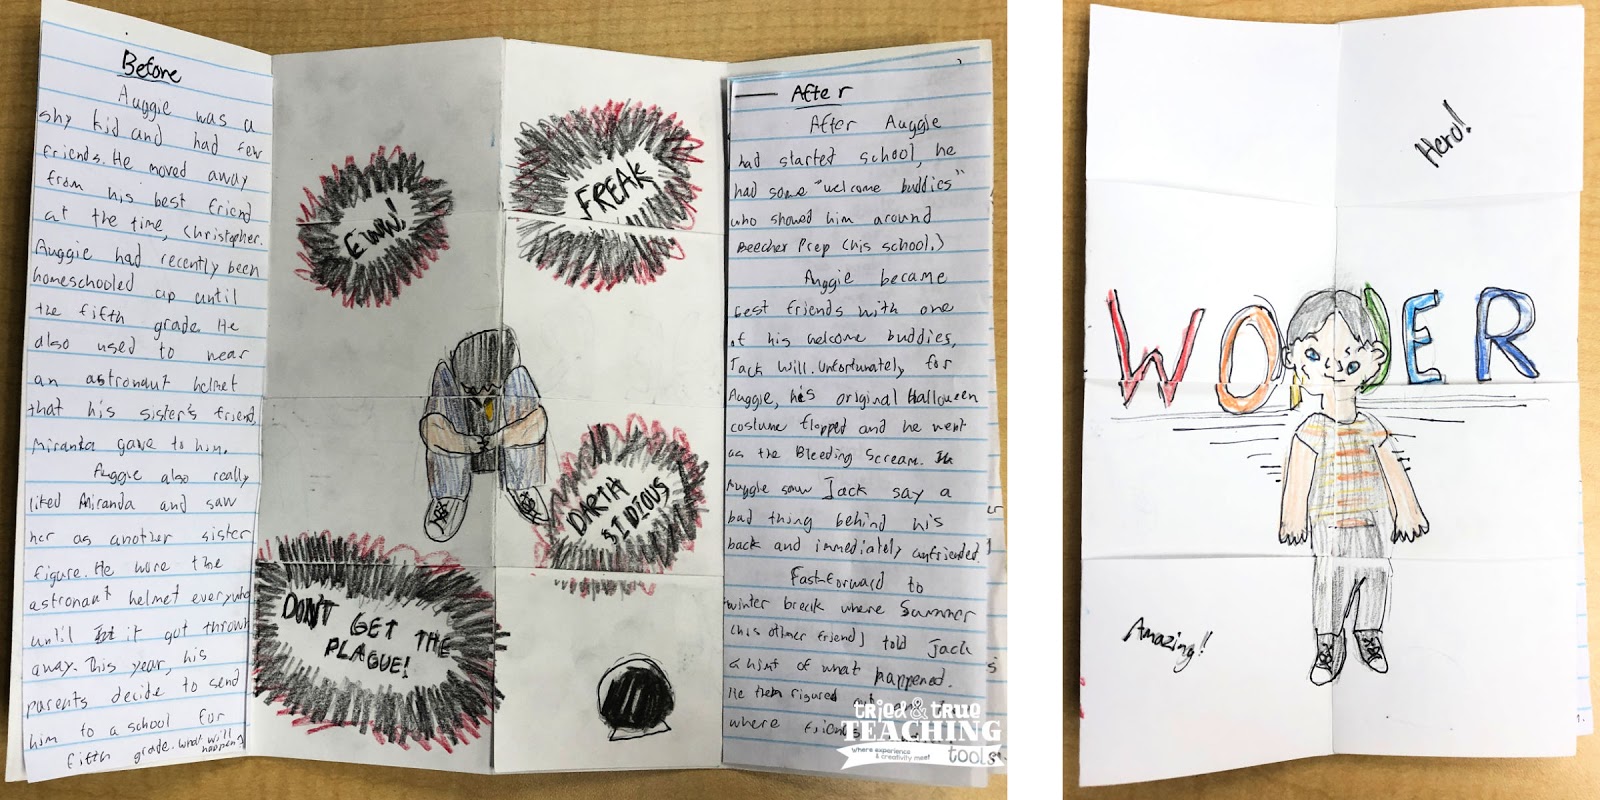 Before
Auggie was a
shy kid and had few
friends. He moved away
from his best friend
at the time, Christopher.
Auggie had recently been
homeschooled up until
the fifth grade. He
also used to wear
an astronaut helmet
that his sister's friend,
Miranda gave to him.
Auggie also really
liked Miranda and saw
her as another sister
figure. He wore the
astronaut helmet everywhe
until it got thrown
away. This year, his
parents decide to send
him to a school for
fifth grade. What will
happen?
EWW!
FREAK
DARTH
SIDIOUS
DON'T GET THE
PLAGUE!
After
After Auggie
had started school, he
had some "welcome buddies"
who showed him around
Beecher Prep (his school.)
Auggie became
best friends with one
of his welcome buddies,
Jack Will. Unfortunately for
Auggie, his original Halloween
costume flopped and he went
as the Bleeding Scream.
Auggie saw Jack say a
bad thing behind his
back and immediately unfriended.
Fast-forward to
winter break where Summer
(his other friend) told Jack
a hint of what happened.
He then figured
where friends
tried & true
TEACHING
tools
where experience
& creativity meet
Hero!
WONDER
Amazing!!